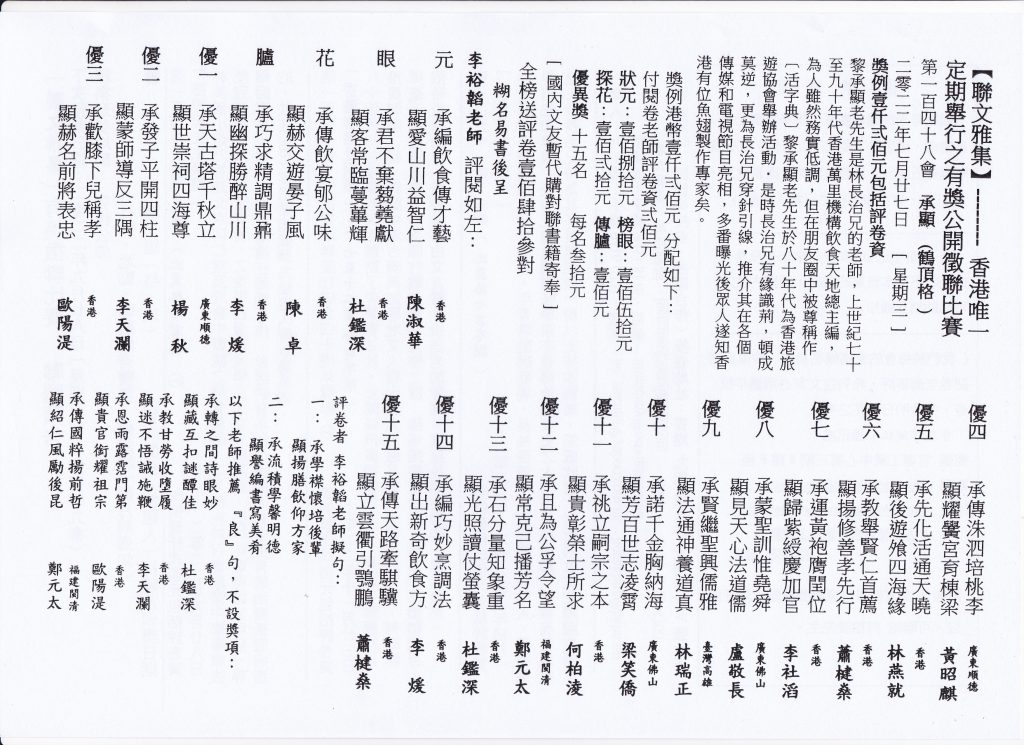 【聯文雅集】-------- 香港唯一
定期舉行之有獎公開徵聯比賽
第一百四十八會 承顯 (鶴頂格)
二零二二年七月廿七日 [星期三]
獎例壹仟弍佰元包括評卷資
黎承顯老先生是林長治兄的老師，上世紀七十
至九十年代香港萬里機構飲食天地總主編，
為人雖然務實低調，但在朋友圈中被尊稱作
〔活字典〕黎承顯老先生於八十年代為香港旅
遊協會舉辦活動．是時長治兄有緣識荊，頓成
莫逆，更為長治兄穿針引線，推介其在各個
傳媒和電視節目亮相，多番曝光後眾人遂知香
港有位魚翅製作專家矣。
獎例港幣壹仟弍佰元 分配如下：
付閱卷老師評卷資弍佰元
狀元：壹佰捌拾元 榜眼：壹佰伍拾元
探花：壹佰弍拾元 傳臚：壹佰元
優異獎 十五名 每名叁拾元
[國內文友暫代購對聯書籍寄奉]
全榜送評卷壹佰肆拾參對
糊名易書後呈
李裕韜老師 評閱如左：
元 承編飲食傳才藝
顯愛山川益智仁 香港 陳淑華
眼 承君不棄芻蕘獻
顯客常臨蔓蓽輝 香港 杜鑑深
花 承傳飲宴郇公味
顯赫交遊晏子風 香港 陳卓
臚 承巧求精調鼎鼐
顯幽探勝醉山川 香港 李煖
優一 承天古塔千秋立
顯世崇祠四海尊 廣東順德 楊秋
優二 承發子平開四柱
顯蒙師導反三隅 香港 李天瀾
優三 承歡膝下兒稱孝
顯赫名前將表忠 香港 歐陽湜
優四 承傳洙泗培桃李
顯耀黌宮育棟梁 廣東順德 黃昭麒
優五 承先化活通天曉
顯後遊飧四海緣 香港 林燕就
優六 承教舉賢仁首薦
顯揚修善孝先行 香港 蕭楗燊
優七 承運黃袍膺閏位
顯歸紫綬慶加官 香港 李社滔
優八 承蒙聖訓惟堯舜
顯見天心法道儒 廣東佛山 盧敬長
優九 承賢繼聖興儒雅
顯法通神養道真 臺灣高雄 林瑞正
優十 承諾千金胸納海
顯芳百世志凌霄 廣東佛山 梁笑僑
優十一 承祧立嗣宗之本
顯貴彰榮士所求 香港 何柏淩
優十二 承且為公孚令望
顯常克己播芳名 福建閩清 鄭元太
優十三 承石分量知象重
顯光照讀仗螢囊 香港 杜鑑深
優十四 承編巧妙烹調法
顯出新奇飲食方 香港 李煖
優十五 承傳天路牽騏驥
顯立雲衢引鶚鵬 香港 蕭楗燊
評卷者 李裕韜老師擬句：
一： 承學襟懷培後輩
顯揚膳飲仰方家
二： 承流積學馨明德
顯譽編書寫美肴
以下老師推薦『良』句，不設獎項：
承轉之間詩眼妙
顯藏互扣謎醰佳 香港 杜鑑深
承教甘勞收墮履
顯迷不悟誡施鞭 香港 李天瀾
承恩雨露霑門第
顯貴官銜耀祖宗 香港 歐陽湜
承傳國粹揚前哲
顯紹仁風勵後昆 福建閩清 鄭元太